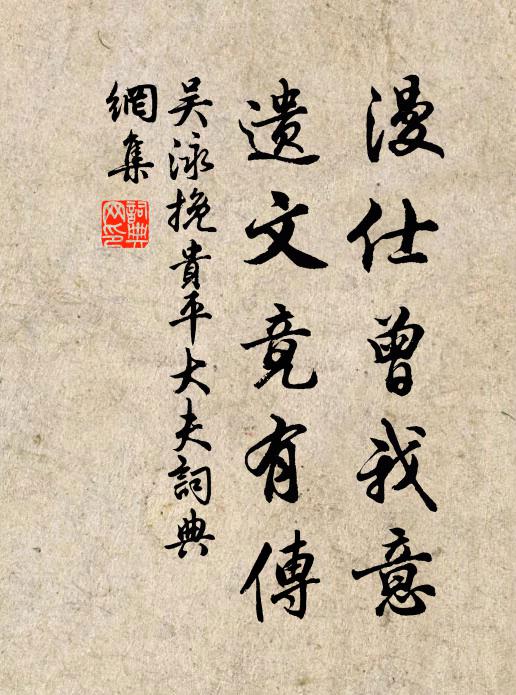 漫仕曾我意
遗文竟有傳
吴泳挽貴平大夫詞典
網集
詞典
网印